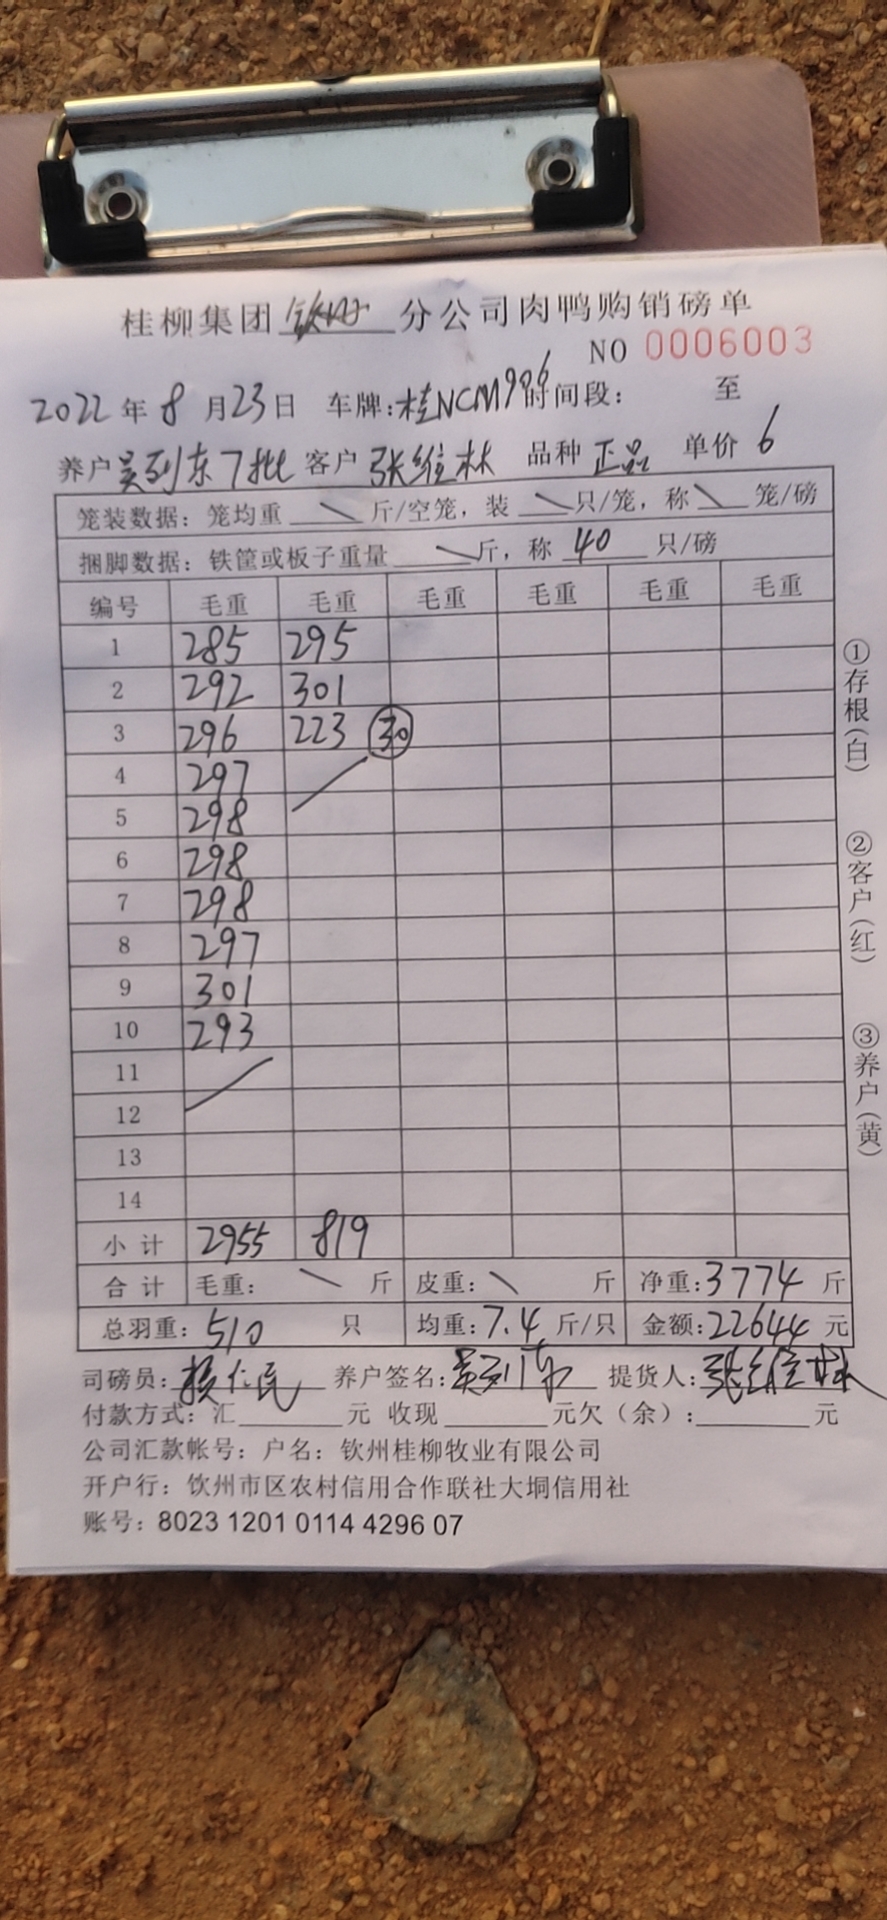 桂柳集团钦州分公司肉鸭购销磅单
NO 0006003
2022年8月23日 车牌:桂NCM906时间段: 至
养户吴列东7批 客户张维林 品种正品 单价6
笼装数据:笼均重\斤/空笼,装\只/笼,称\笼/磅
捆脚数据:铁筐或板子重量\斤,称40只/磅
编号 毛重 毛重 毛重 毛重 毛重 毛重
1 285 295
2 292 301
3 296 223 ㉚
4 297
5 298
6 298
7 298
8 297
9 301
10 293
11
12
13
14
小计 2955 819
合计 毛重:\斤 皮重:\斤 净重:3774斤
总羽重:510只 均重:7.4斤/只 金额:22644元
司磅员: 养户签名:吴列东 提货人:张维林
付款方式:汇____元 收现____元欠(余):____元
公司汇款帐号:户名:钦州桂柳牧业有限公司
开户行:饮州市区农村信用合作联社大垌信用社
账号:8023 1201 0114 4296 07
①存根(白) ②客户(红) ③养户(黄)